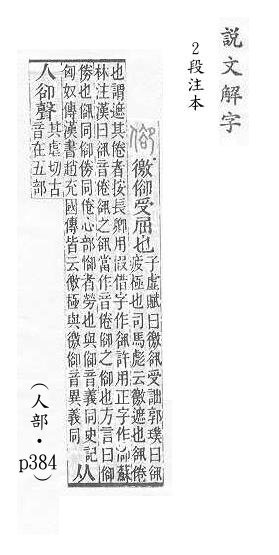 説文解字
2段注本
徼受屈也
子虛賦曰徼受詘郭璞曰
疲極也司馬彪云徼遮也倦
也謂遮其倦者按長卿用假借字作許用正字作蘇
林注漢曰音倦之當作音倦之也方言曰
也同同倦心部者勞也與音義同史記
匈奴傳漢書趙充國傳皆云極與徼音異義同
从
人卻聲
其虐切古
音在五部
(人部・p384)